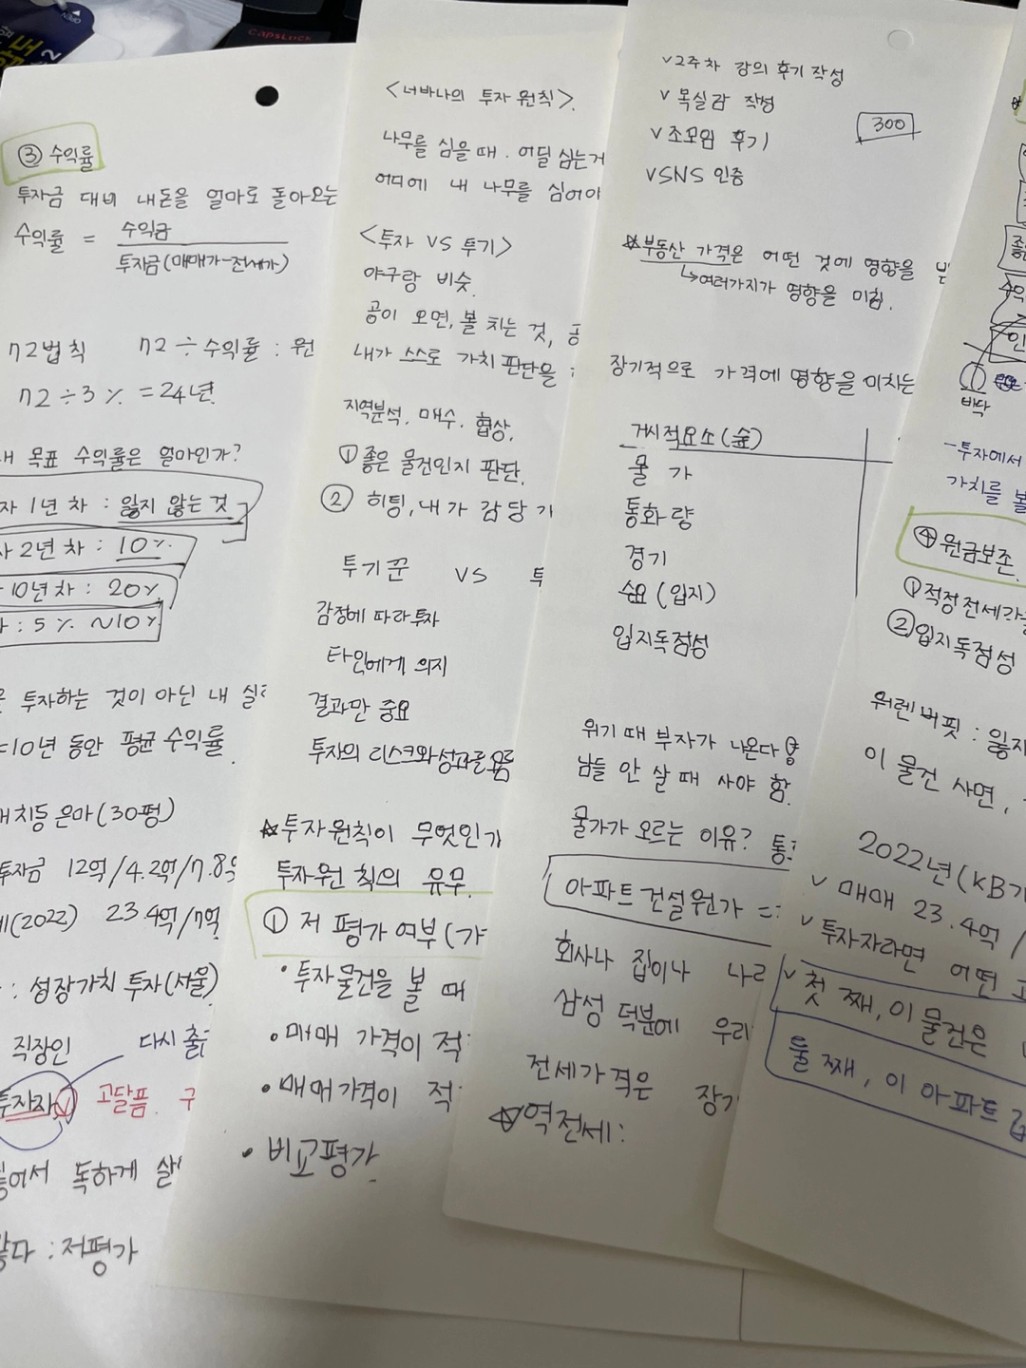 CapsLock
③ 수익률
투자금 대비 내돈을 얼마로 돌아오는
수익률 = 수익금
투자금(매매가-전세가)
72법칙 72÷수익률 : 원
72÷3% = 24년
목표 수익률은 얼마인가?
1년 차 : 잃지 않는 것
2년 차 : 10%.
10년차 : 20%
: 5% ~10%
투자하는 것이 아닌 내 실
=10년 동안 평균 수익률.
은마(30평)
투자금 12억/4.2억/7.8억
(2022) 23.4억/7억
: 성장가치 투자(서울)
직장인 다시 출
투자자 고달픔. 구
독하게 살
: 저평가
<너바나의 투자 원칙>.
나무를 심을 때. 어딜 심는거
어디에 내 나무를 심어야
<투자 VS 투기>
야구랑 비슷.
공이 오면, 볼 치는 것, 공
내가 스스로 가치 판단을
지역분석. 매수. 협상.
① 좋은 물건인지 판단.
② 히팅, 내가 감당 가
투기꾼 VS 투
감정에 따라 투자
타인에게 의지
결과만 중요
투자의 리스크와 성과를 모름
☆투자원칙이 무엇인가
투자원칙의 유무.
① 저평가 여부(가
• 투자물건을 볼 때
• 매매 가격이 적
• 매매가격이 적
• 비교평가.
v2주차 강의 후기 작성
v 목실감 작성
v 조모임 후기
vSNS 인증
300
☆부동산 가격은 어떤 것에 영향을 받
↳여러가지가 영향을 미침.
장기적으로 가격에 영향을 미치는
거시적요소(숲)
물가
통화량
경기
수요(입지)
입지독점성
위기 때 부자가 나온다
남들 안 살 때 사야 함.
물가가 오르는 이유? 통
아파트 건설원가 =
회사나 집이나 나라
삼성 덕분에 우리
전세가격은 장기
☆역전세:
바닥
-투자에서
가치를 볼
④ 원금보존.
① 적정 전세가율
② 입지독점성
워렌버핏 : 잃지
이 물건 사면,
2022년(KB
v 매매 23.4억 /
v 투자자라면 어떤
v 첫 째, 이 물건은
둘 째, 이 아파트